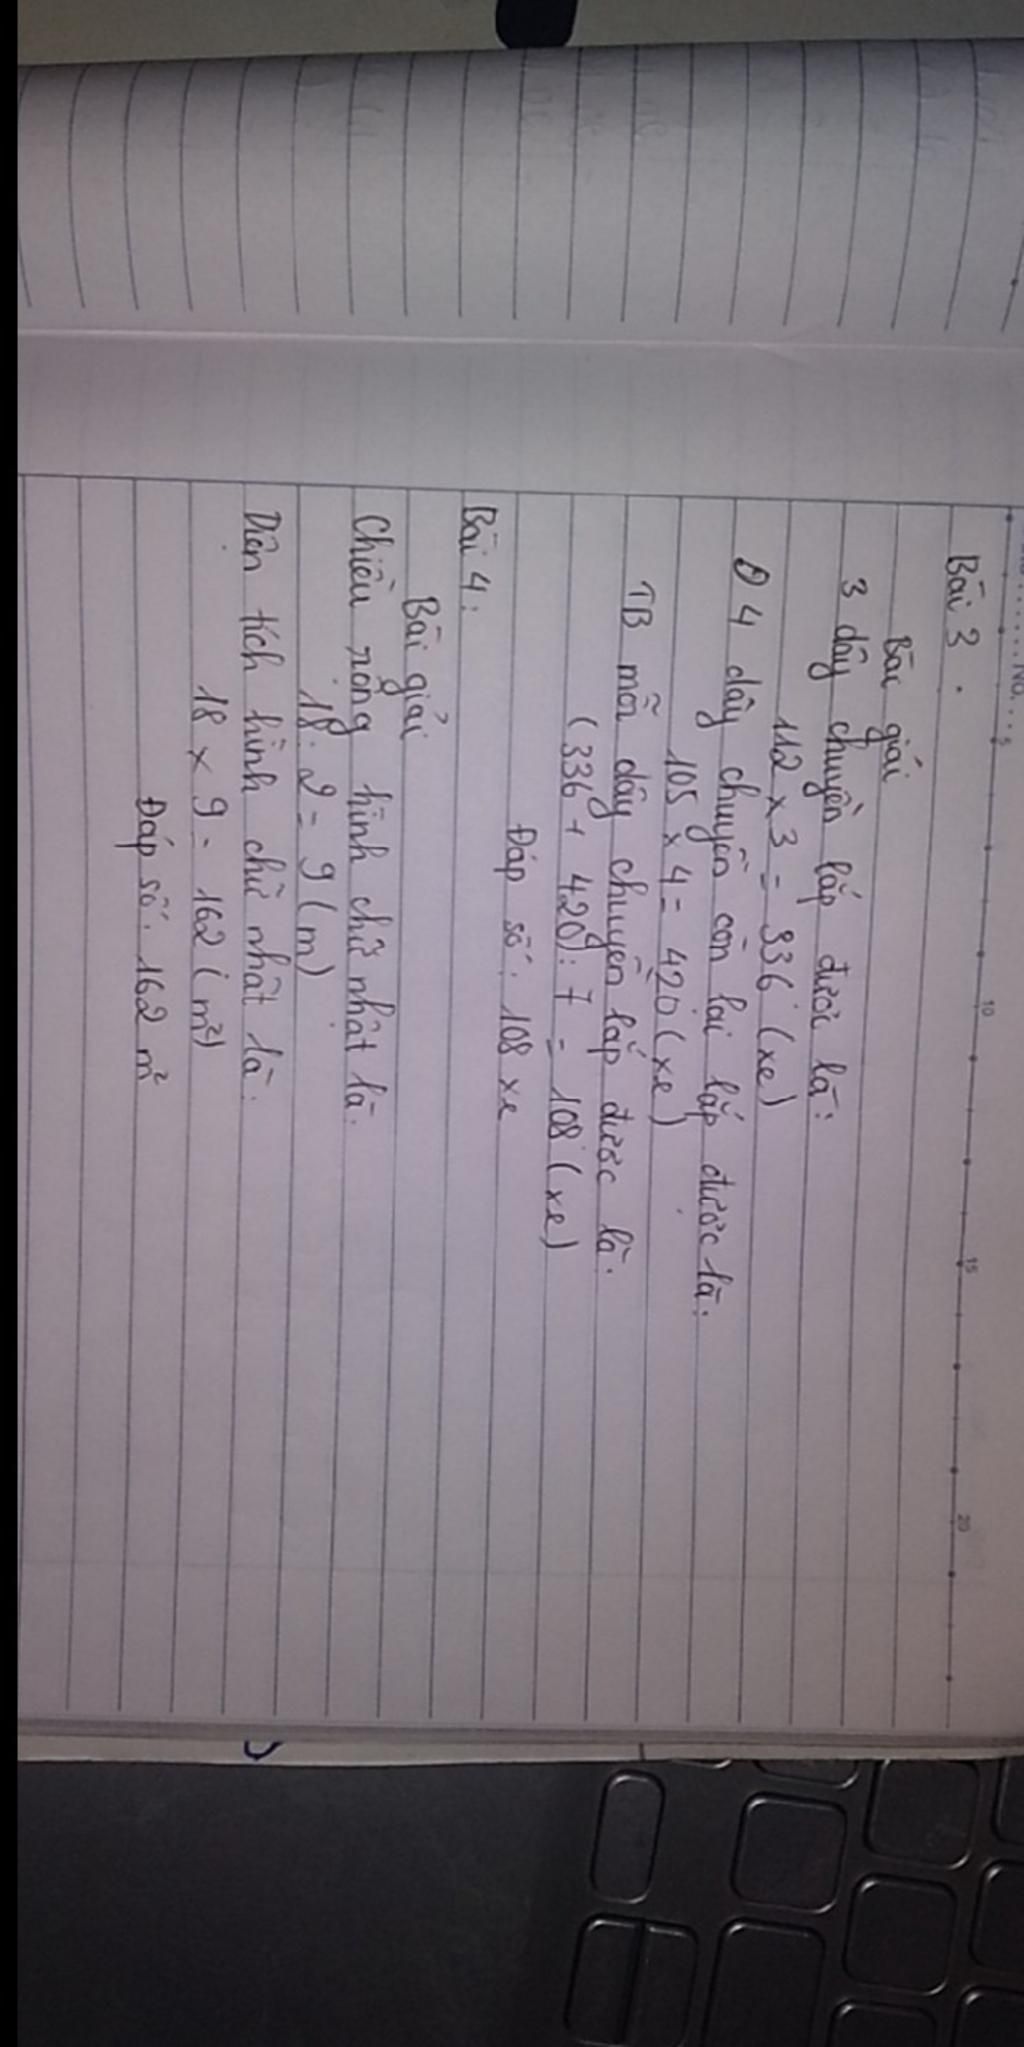 No....
5
10
15
20
Bài 3.
Bài giải
3 dây chuyền lắp được là:
112 x 3 = 336 (xe)
4 dây chuyền còn lại lắp được là:
105 x 4 = 420 (xe)
TB mỗi dây chuyền lắp được là:
(336 + 420) : 7 = 108 (xe)
Đáp số: 108 xe
Bài 4:
Bài giải
Chiều rộng hình chữ nhật là:
18 : 2 = 9 (m)
Diện tích hình chữ nhật là:
18 x 9 = 162 (m²)
Đáp số: 162 m²